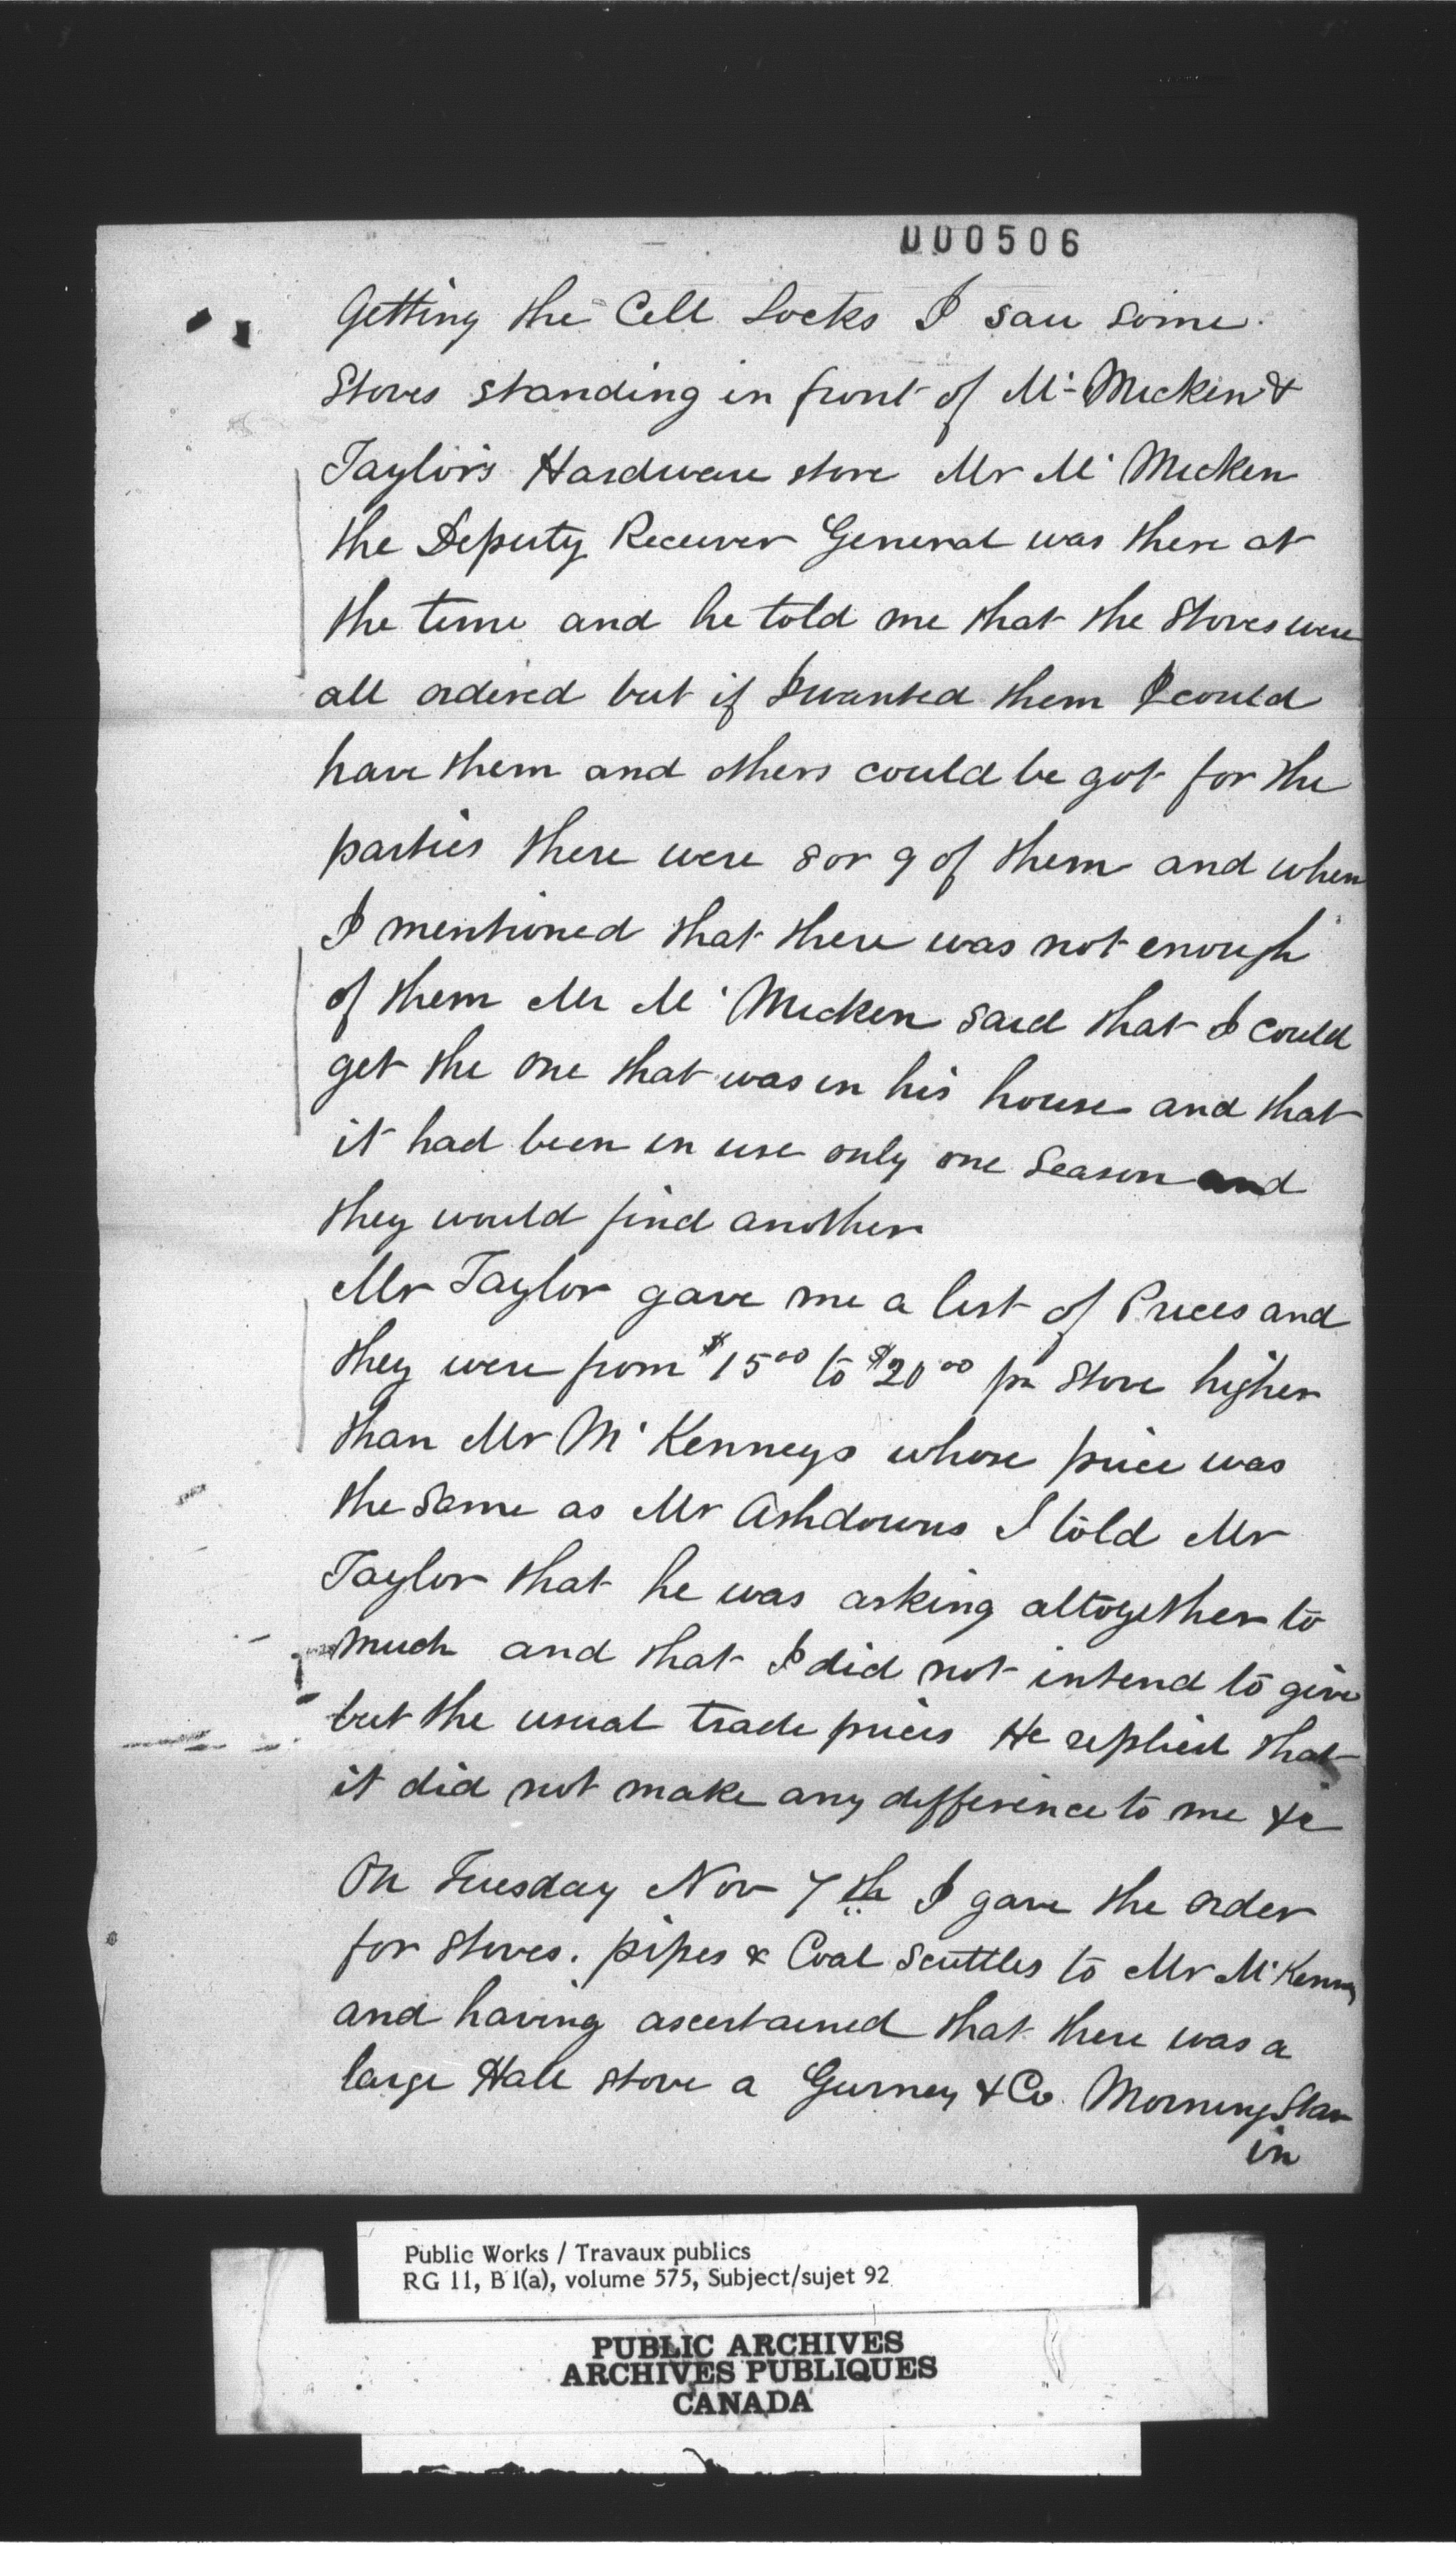 000506
Getting the Cell Locks I saw some
Stoves standing in front of Mc Micken &
Taylor's Hardware store Mr Mc Micken
the Deputy Receiver General was there at
the time and he told me that the Stoves were
all ordered but if I wanted them I could
have them and others could be got for the
parties there were 8 or 9 of them and when
I mentioned that there was not enough
of them Mr Mc Micken said that I could
get the one that was in his house and that
it had been in use only one Season and
they would find another
Mr Taylor gave me a list of Prices and
they were from $15 00 to $20 00 pr Stove higher
than Mr Mc Kenneys whose price was
the same as Mr Ashdowns I told Mr
Taylor that he was asking altogether to
much and that I did not intend to give
but the usual trade prices He replied that
it did not make any difference to me &c
On Tuesday Nov 7th I gave the order
for stoves. pipes & Coal Scuttles to Mr McKenney
and having ascertained that there was a
large Hall stove a Gurney & Co. Morning Star
in
Public Works / Travaux publics
RG 11, B 1(a), volume 575, Subject/sujet 92
PUBLIC ARCHIVES
ARCHIVES PUBLIQUES
CANADA